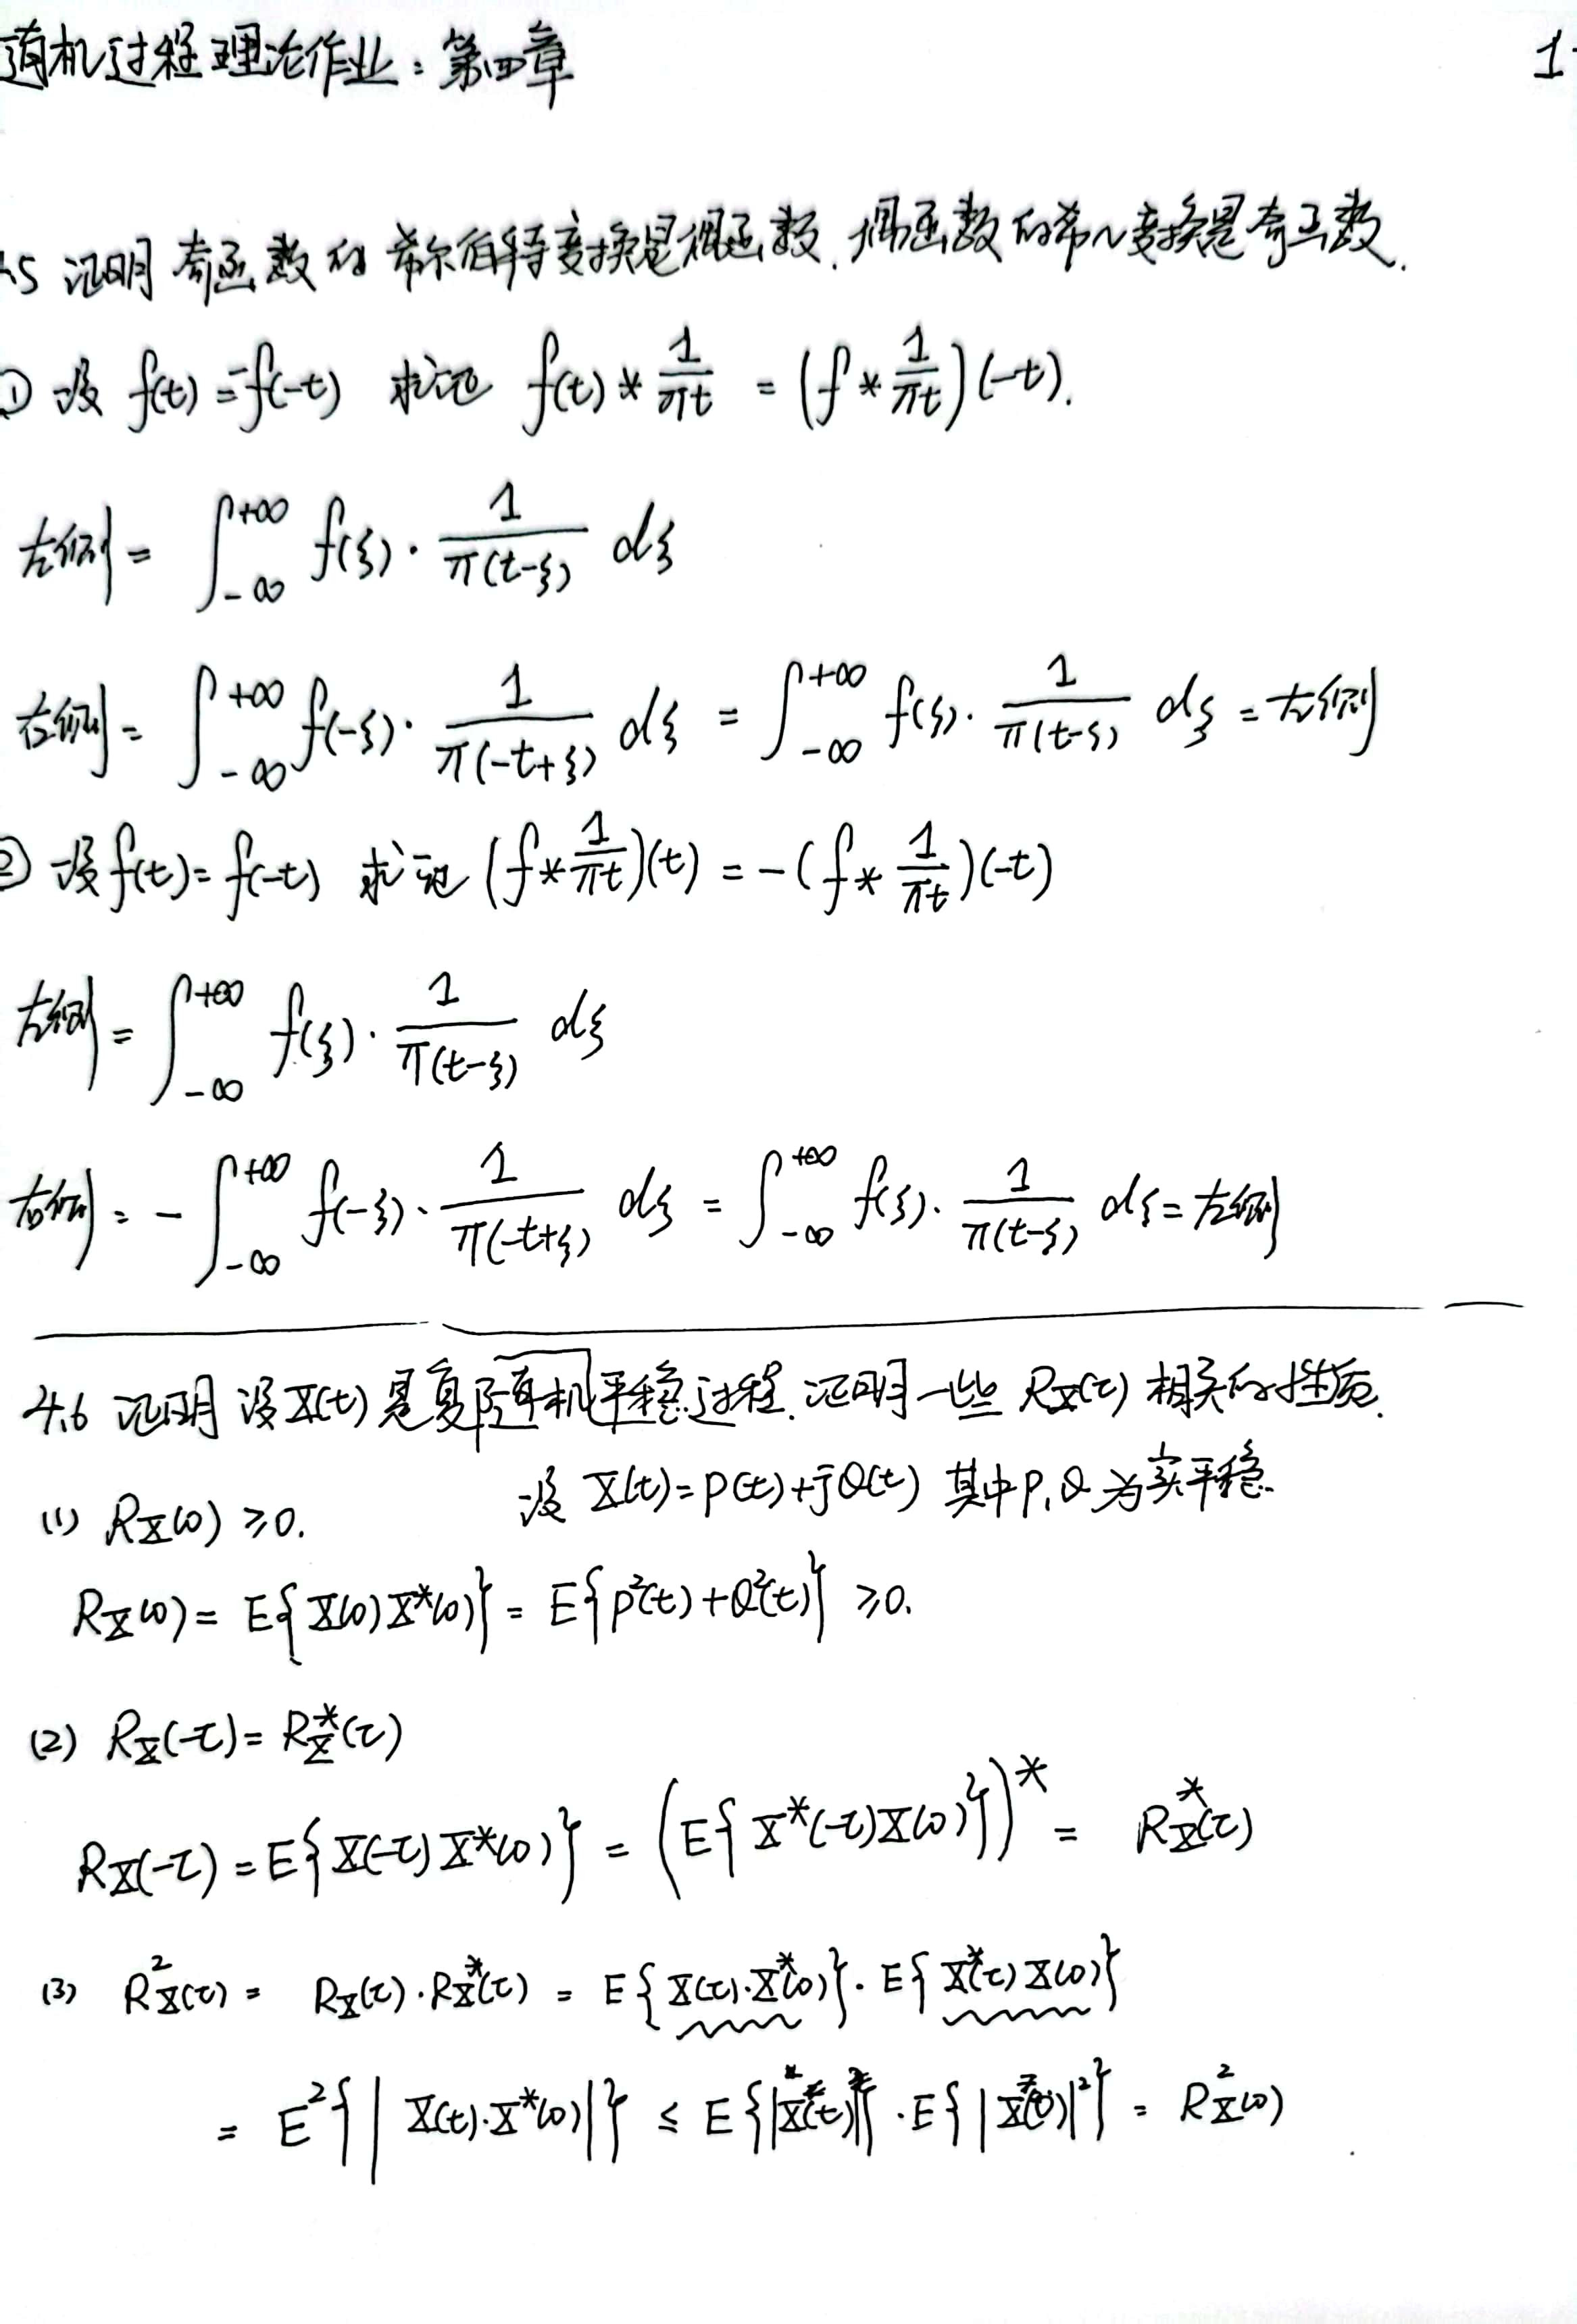 随机过程理论作业：第四章 1
4.5 证明 奇函数的希尔伯特变换是偶函数. 偶函数的希~变换是奇函数.
① 设 f(t)=-f(-t) 求证 f(t) * 1/πt = (f * 1/πt)(-t).
左侧 = ∫_{-∞}^{+∞} f(ξ)· 1/π(t-ξ) dξ
右侧 = ∫_{-∞}^{+∞} f(-ξ)· 1/π(-t+ξ) dξ = ∫_{-∞}^{+∞} f(ξ)· 1/π(t-ξ) dξ = 左侧
② 设 f(t)= f(-t) 求证 (f * 1/πt)(t) = -(f * 1/πt)(-t)
左侧 = ∫_{-∞}^{+∞} f(ξ)· 1/π(t-ξ) dξ
右侧 = - ∫_{-∞}^{+∞} f(-ξ)· 1/π(-t+ξ) dξ = ∫_{-∞}^{+∞} f(ξ)· 1/π(t-ξ) dξ = 左侧
4.6 证明 设X(t)是复随机平稳过程. 证明一些 R_X(τ) 相关的性质.
设 X(t)=P(t)+jQ(t) 其中P,Q为实平稳.
(1) R_X(0) ≥0.
R_X(0) = E{X(0)X*(0)} = E{P²(t)+Q²(t)} ≥0.
(2) R_X(-τ)= R_X*(τ)
R_X(-τ) = E{X(-τ)X*(0)} = (E{X*(-τ)X(0)})* = R_X*(τ)
(3) R_X²(τ) = R_X(τ)·R_X*(τ) = E{X(τ)·X*(0)}·E{X*(τ)X(0)}
= E²{|X(τ)·X*(0)|} ≤ E{|X(τ)|²}·E{|X(0)|²} = R_X²(0)